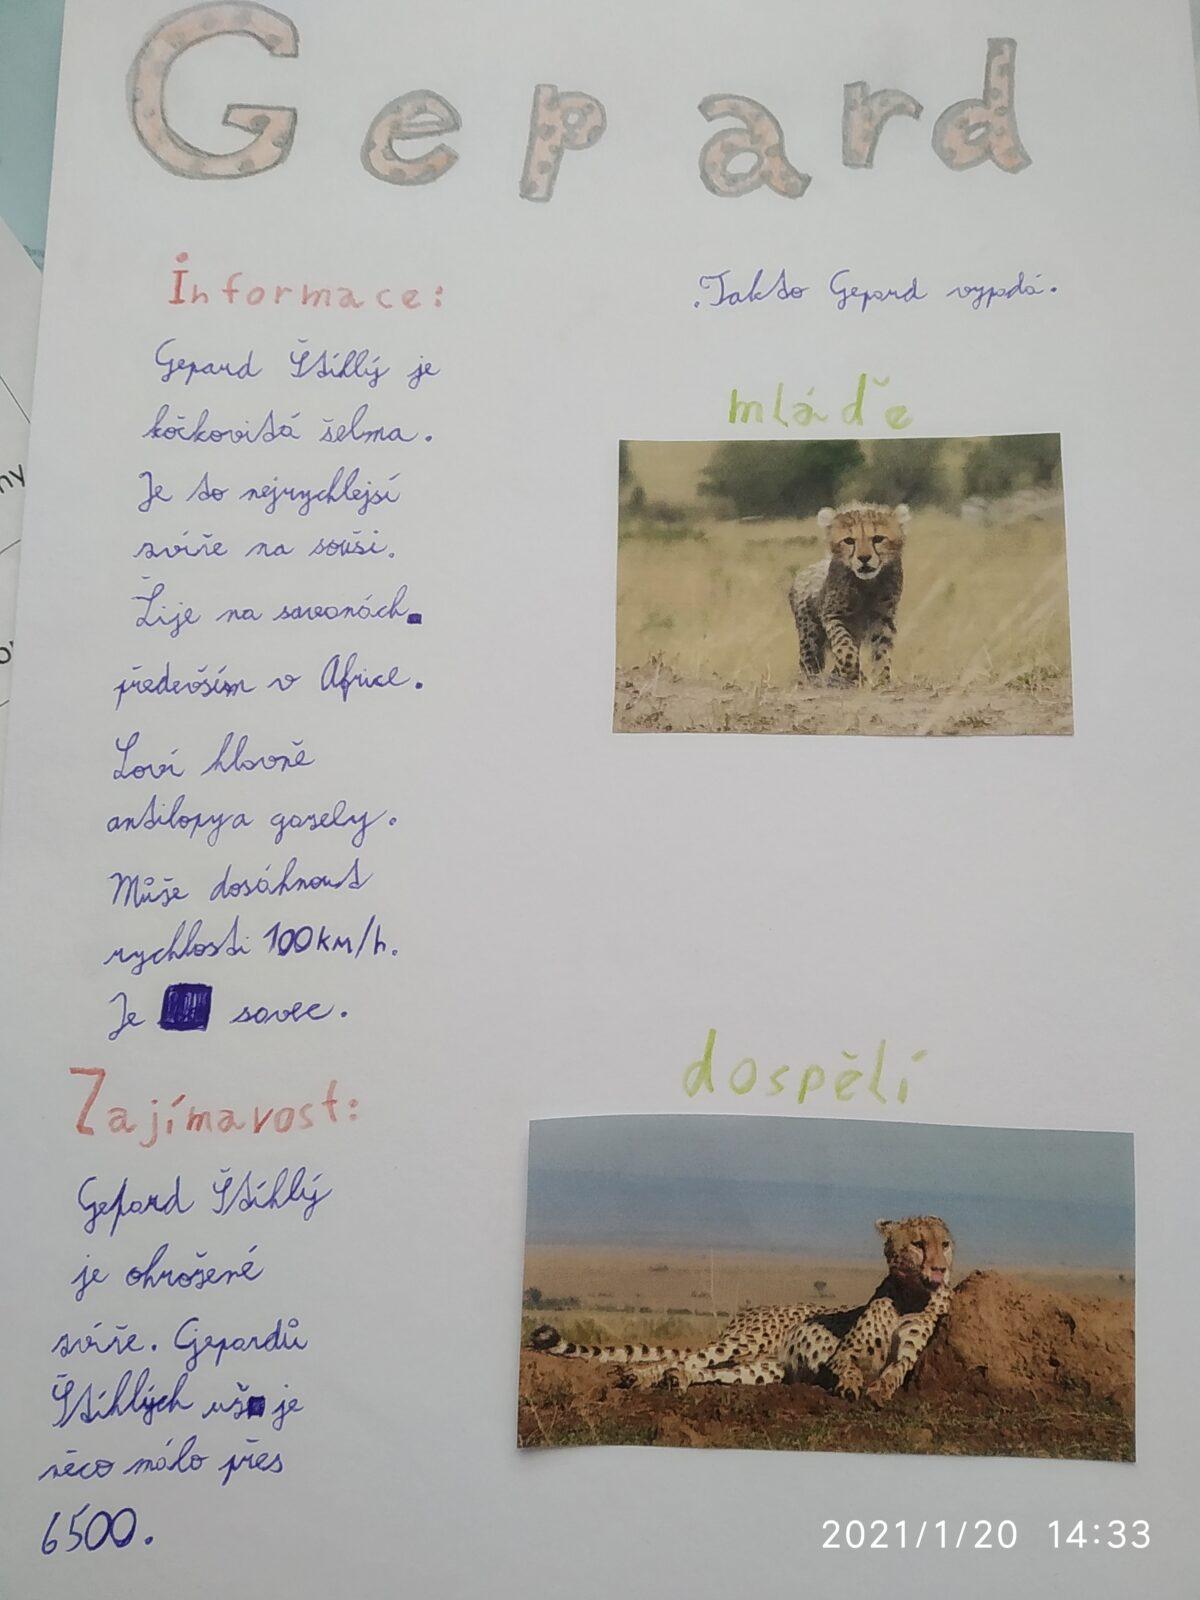 Gepard
Informace:
Gepard Štíhlý je
kočkovitá šelma.
Je to nejrychlejsí
zvíře na souši.
Žije na savanách
především v Africe.
Loví hlavně
antilopy a gazely.
Může dosáhnout
rychlosti 100km/h.
Je savec.
Zajímavost:
Gepard Štíhlý
je ohrožené
zvíře. Gepardů
Štíhlých už je
něco málo přes
6500.
.Takto Gepard vypadá.
mláďe
dospělí
2021/1/20 14:33